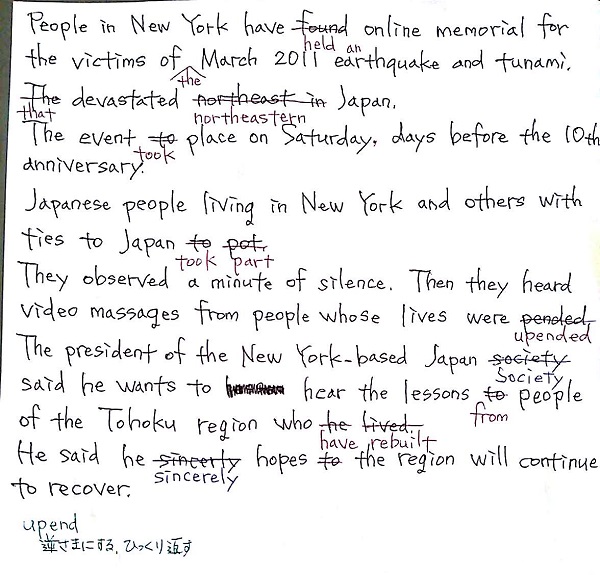 People in New York have found online memorial for
held an
the victims of March 2011 earthquake and tunami.
the
The devastated northeast in Japan.
that northeastern
The event to place on Saturday, days before the 10th
took
anniversary.
Japanese people living in New York and others with
ties to Japan to pot.
took part
They observed a minute of silence. Then they heard
video massages from people whose lives were pended.
upended
The president of the New York-based Japan society
Society
said he wants to hear the lessons to people
from
of the Tohoku region who he lived.
have rebuilt
He said he sincerty hopes to the region will continue
sincerely
to recover.
upend
逆さまにする, ひっくり返す